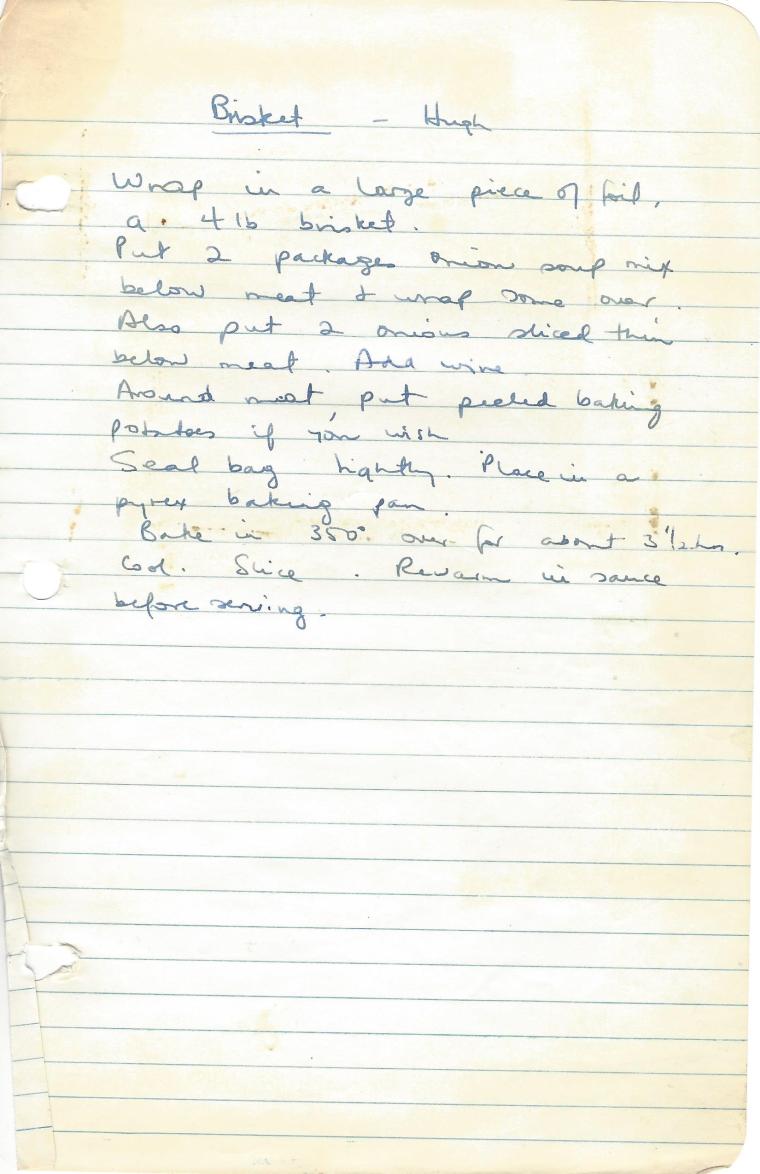 Brisket - Hugh
Wrap in a large piece of foil,
a 4 lb brisket.
Put 2 packages onion soup mix
below meat & wrap some over.
Also put 2 onions sliced thin
below meat. Add wine
Around meat, put peeled baking
potatoes if you wish
Seal bag tightly. Place in a
pyrex baking pan.
Bake in 350° oven for about 3 1/2 hrs.
Cool. Slice. Rewarm in sauce
before serving.